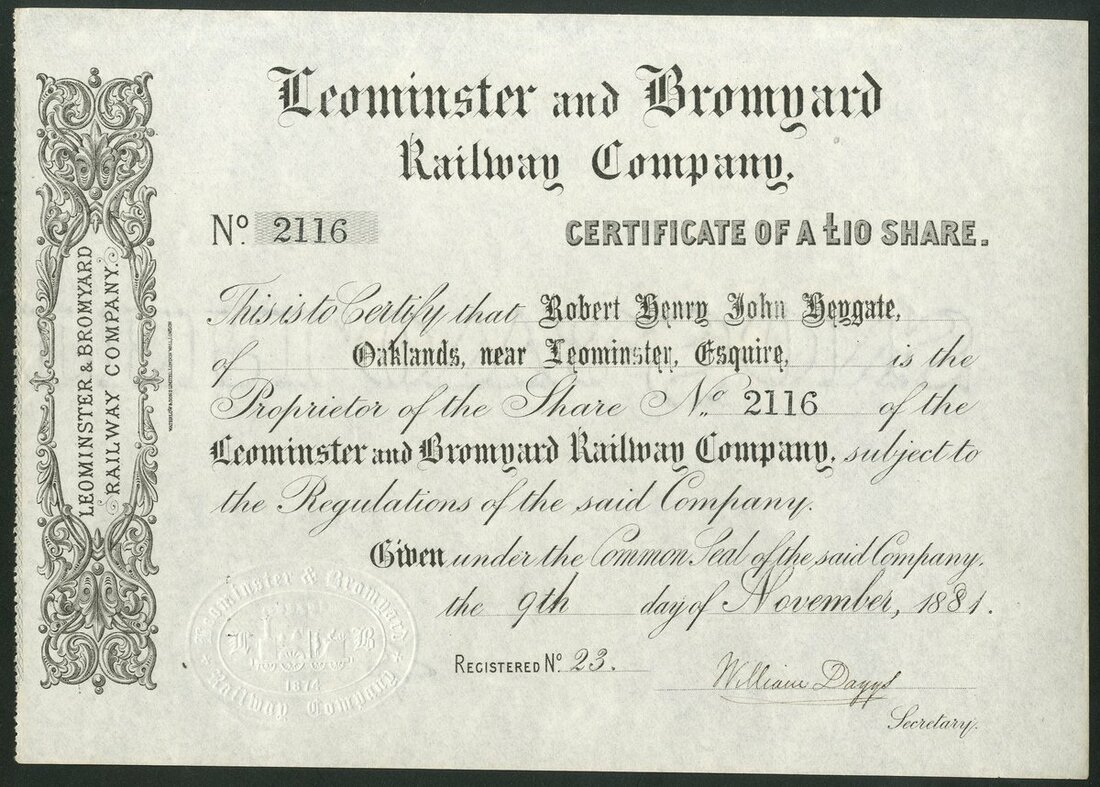 Leominster and Bromyard
Railway Company,
No. 2116
CERTIFICATE OF A £10 SHARE.
This is to Certify that Robert Henry John Heygate,
of Oaklands, near Leominster, Esquire, is the
Proprietor of the Share No. 2116 of the
Leominster and Bromyard Railway Company, subject to
the Regulations of the said Company.
Given under the Common Seal of the said Company,
the 9th day of November, 1881.
REGISTERED No. 23.
William Daggs
Secretary.
LEOMINSTER & BROMYARD
RAILWAY COMPANY.
Leominster & Bromyard
L B
1874
Railway Company